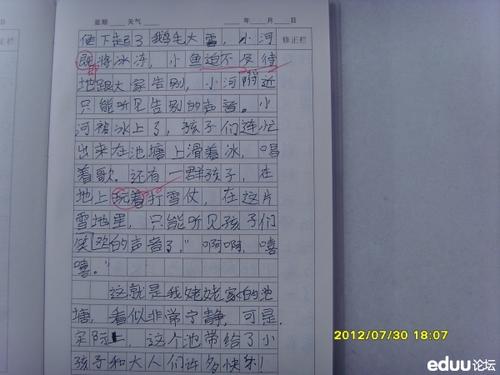 星期 天气 年 月 日
修正栏
便下起了鹅毛大雪，小河
即将冰冻，小鱼迫不及待
地跟大家告别，小河附近
只能听见告别的声音。小
河被冰上了，孩子们连忙
出来在池塘上滑着冰，唱
着歌。还有一群孩子，在
地上玩着打雪仗，在这片
雪地里，只能听见孩子们
笑欢的声音了，“啊啊，嘻
嘻。”
这就是我姥姥家的池
塘，看似非常宁静，可是，
实际上，这个池带给了小
孩子和大人们许多快乐！
2012/07/30 18:07
eduu论坛